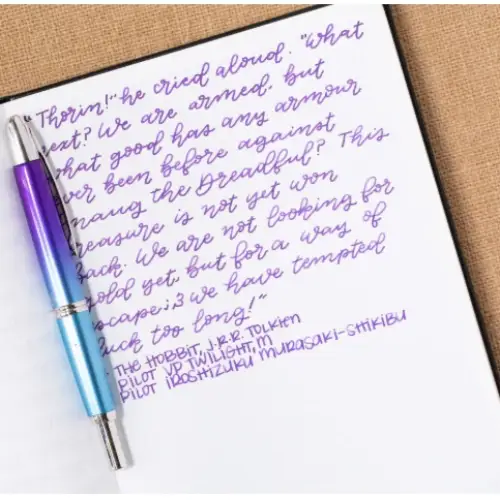 "Thorin!" he cried aloud. "What
next? We are armed, but
what good has any armour
ever been before against
Smaug the Dreadful? This
treasure is not yet won
back. We are not looking for
gold yet, but for a way of
escape;3 we have tempted
luck too long!"
THE HOBBIT, J.R.R. TOLKIEN
PILOT VP TWILIGHT, M
PILOT IROSHIZUKU MURASAKI-SHIKIBU